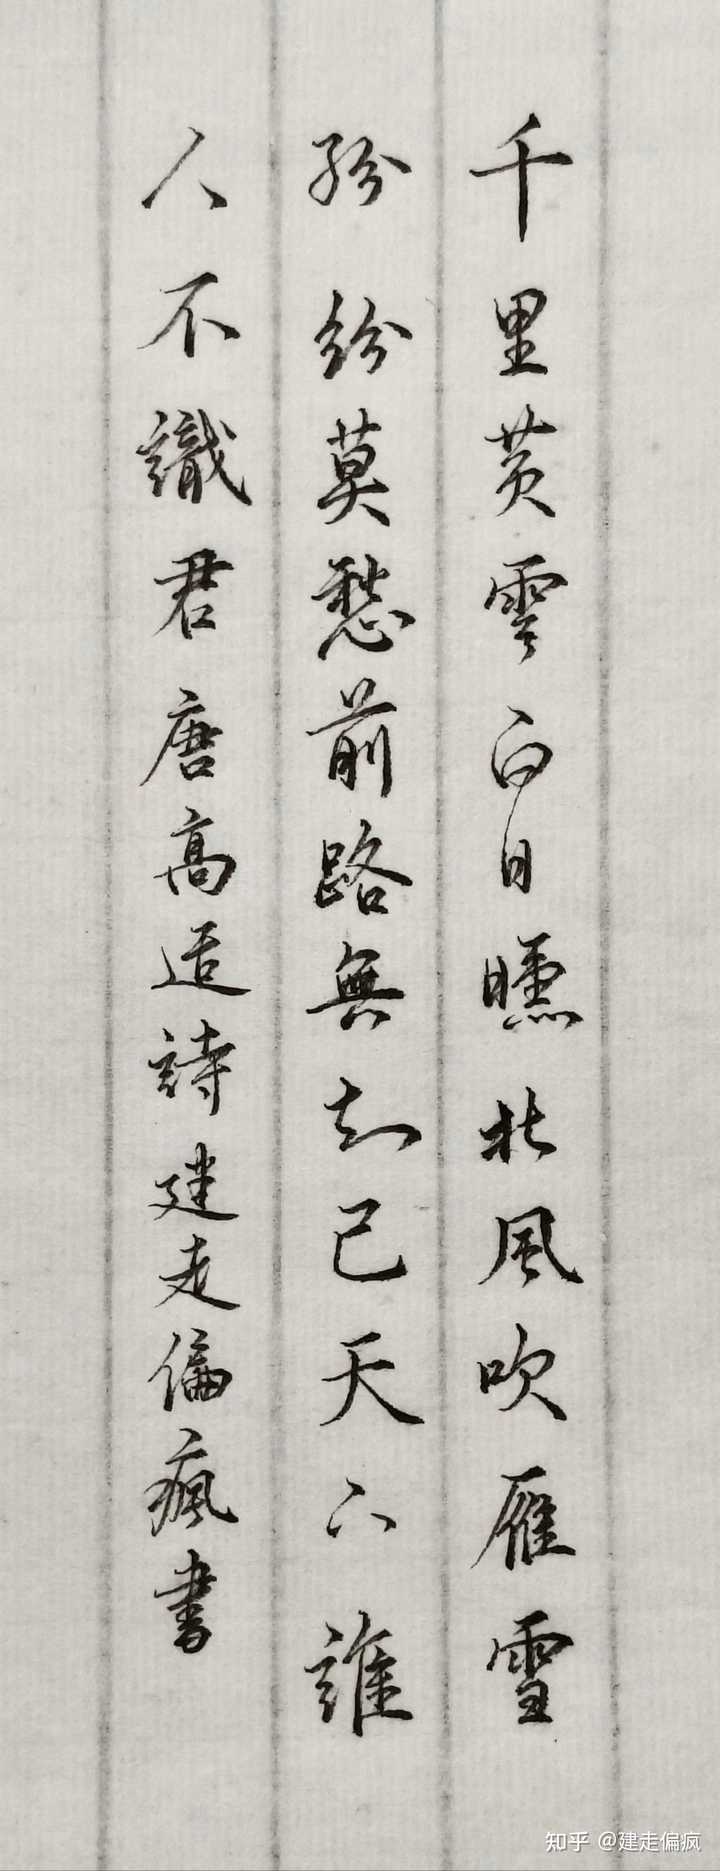 千里黄雲白日曛北風吹雁雪
紛紛莫愁前路無知己天下誰
人不識君唐高适詩建走偏瘋書
知乎 @建走偏疯